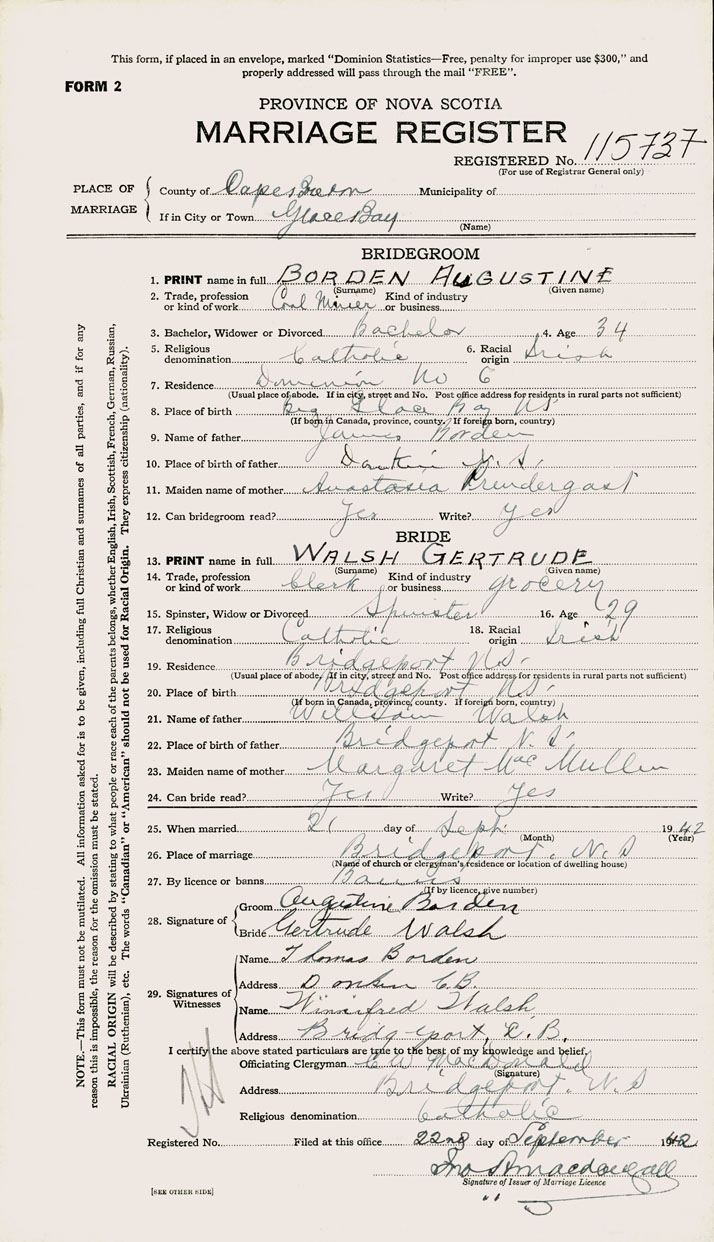 This form, if placed in an envelope, marked "Dominion Statistics—Free, penalty for improper use $300," and
properly addressed will pass through the mail "FREE".
FORM 2
PROVINCE OF NOVA SCOTIA
MARRIAGE REGISTER
REGISTERED No. 115737
(For use of Registrar General only)
PLACE OF MARRIAGE
County of Cape Breton Municipality of
If in City or Town Glace Bay
(Name)
BRIDEGROOM
1. PRINT name in full BORDEN AUGUSTINE
(Surname) (Given name)
2. Trade, profession or kind of work Coal Miner Kind of industry or business
3. Bachelor, Widower or Divorced Bachelor 4. Age 34
5. Religious denomination Catholic 6. Racial origin Irish
7. Residence Dominion No 6
(Usual place of abode. If in city, street and No. Post office address for residents in rural parts not sufficient)
8. Place of birth Big Glace Bay NS
(If born in Canada, province, county. If foreign born, country)
9. Name of father James Borden
10. Place of father Donkin N.S.
11. Maiden name of mother Anastasia Prendergast
12. Can bridegroom read? Yes Write? Yes
BRIDE
13. PRINT name in full WALSH GERTRUDE
(Surname) (Given name)
14. Trade, profession or kind of work Clerk Kind of industry or business grocery
15. Spinster, Widow or Divorced Spinster 16. Age 29
17. Religious denomination Catholic 18. Racial origin Irish
19. Residence Bridgeport N.S.
(Usual place of abode. If in city, street and No. Post office address for residents in rural parts not sufficient)
20. Place of birth Bridgeport N.S.
(If born in Canada, province, county. If foreign born, country)
21. Name of father William Walsh
22. Place of birth of father Bridgeport N.S.
23. Maiden name of mother Margaret MacMullin
24. Can bride read? Yes Write? Yes
25. When married 21 day of Sept. 1942
(Month) (Year)
26. Place of marriage Bridgeport, N.S
(Name of church or clergyman's residence or location of dwelling house)
27. By licence or banns Banns
(If by licence, give number)
28. Signature of
Groom Augustine Borden
Bride Gertrude Walsh
29. Signatures of Witnesses
Name Thomas Borden
Address Donkin C.B.
Name Winnifred Walsh
Address Bridgeport, C.B.
I certify the above stated particulars are true to the best of my knowledge and belief.
Officiating Clergyman MacDonald
(Signature)
Address Bridgeport. N.S
Religious denomination Catholic
Registered No. Filed at this office 22nd day of September 1942
Jno A Macdougall
Signature of Issuer of Marriage Licence
[SEE OTHER SIDE]
NOTE.—This form must not be mutilated. All information asked for is to be given, including full Christian and surnames of all parties, and if for any
reason this is impossible, the reason for the omission must be stated.
RACIAL ORIGIN will be described by stating to what people or race each of the parents belongs, whether English, Irish, Scottish, French, German, Russian,
Ukrainian (Ruthenian), etc. The words "Canadian" or "American" should not be used for Racial Origin. They express citizenship (nationality).